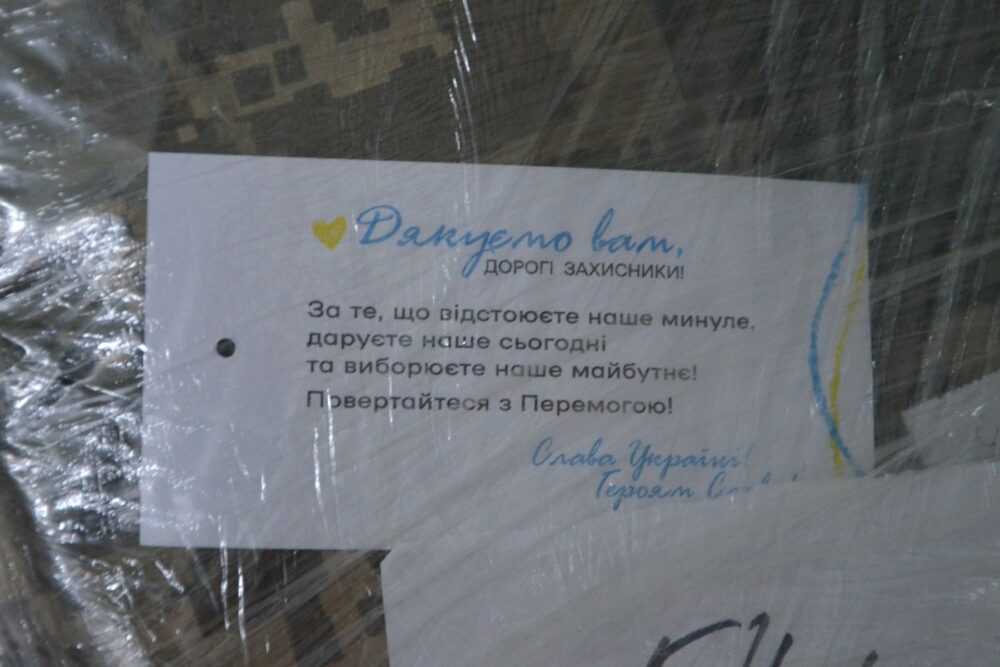 Дякуємо вам,
ДОРОГІ ЗАХИСНИКИ!
За те, що відстоюєте наше минуле,
даруєте наше сьогодні
та виборюєте наше майбутнє!
Повертайтеся з Перемогою!
Слава Україні!
Героям